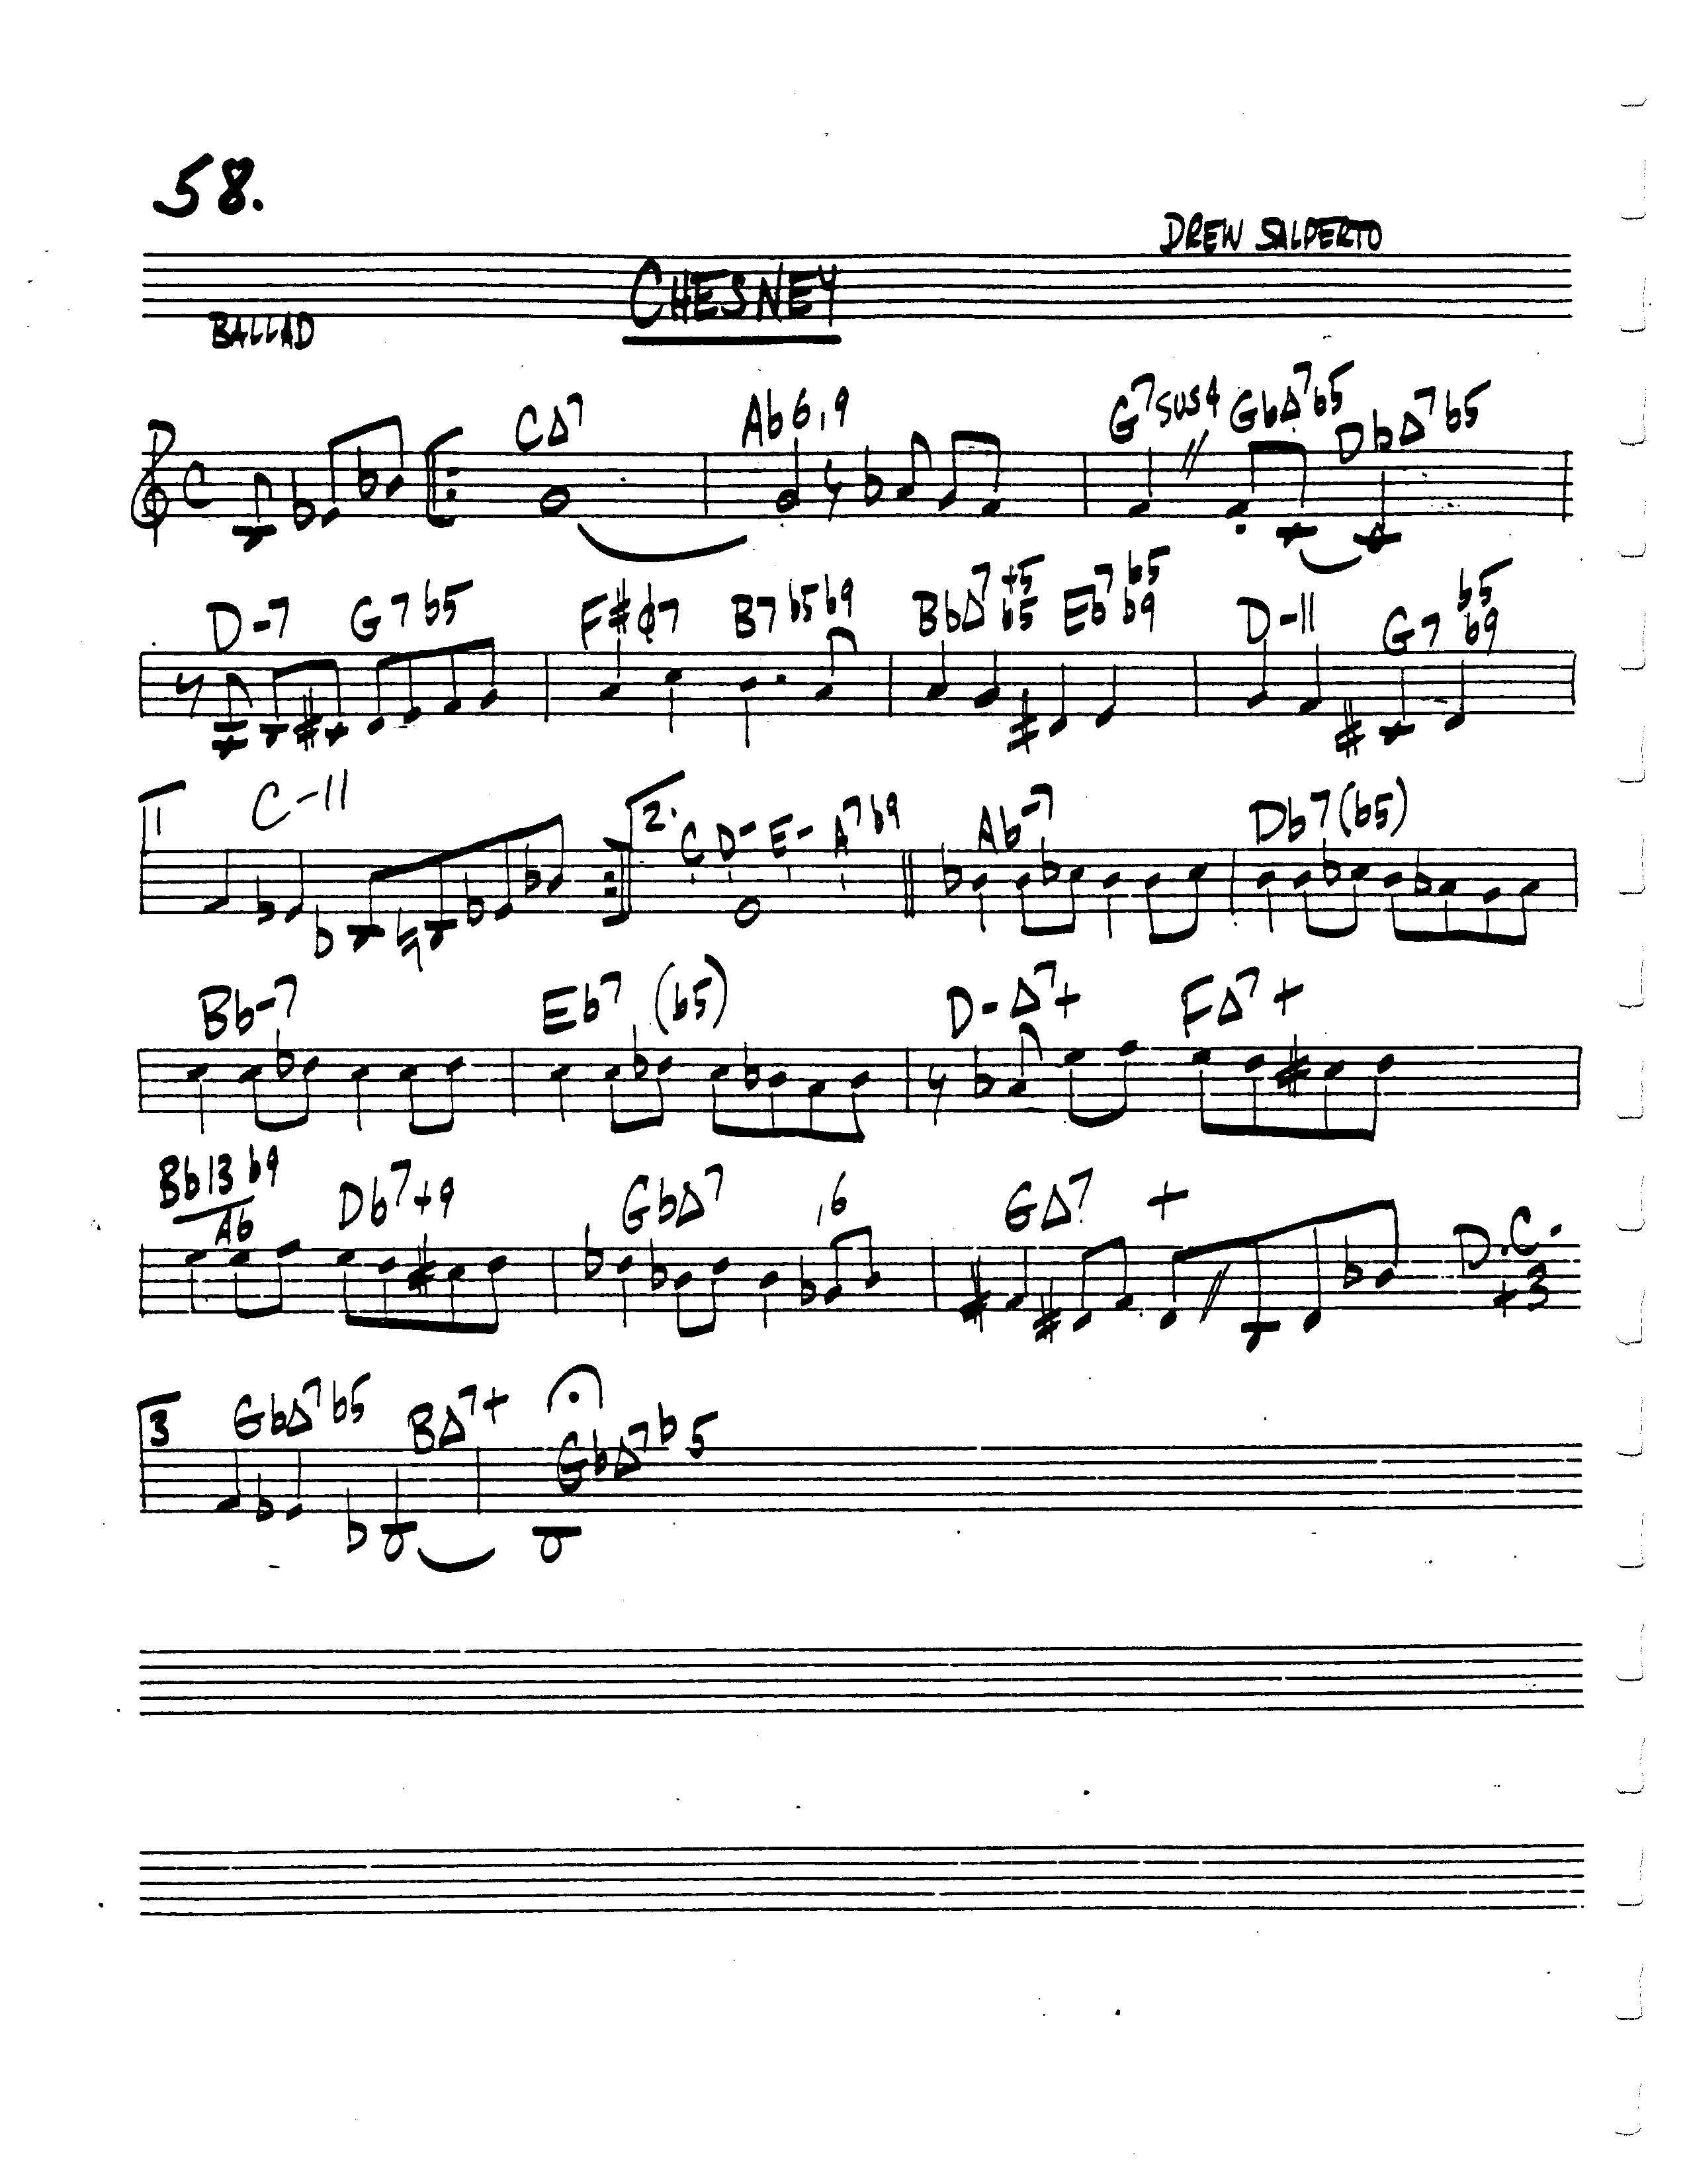 58.
DREW SALPERTO
CHESNEY
BALLAD
C∆7 Ab6,9 G7sus4 Gb∆7b5 Db∆7b5
D-7 G7b5 F#ø7 B7b5b9 Bb∆7+5b5 Eb7b5b9 D-11 G7b5b9
1 C-11 2. C D- E- A7b9 Ab-7 Db7(b5)
Bb-7 Eb7(b5) D-∆7+ F∆7+
Bb13b9/Ab Db7+9 Gb∆7 ,6 G∆7 + D.C. + 3
3 Gb∆7b5 B∆7+ Gb∆7b5